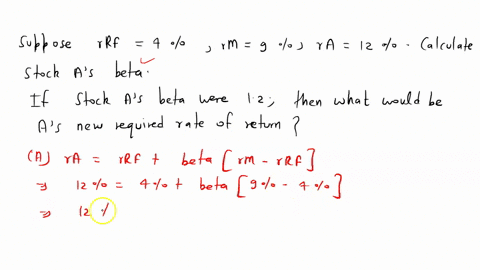 Suppose rRF = 4 %, rM = 9 %, rA = 12 %. Calculate
Stock A's beta.
If Stock A's beta were 1.2, then what would be
A's new required rate of return?
(A) rA = rRF + beta [rM - rRF]
⇒ 12 % = 4 % + beta [9 % - 4 %]
⇒ 12 %